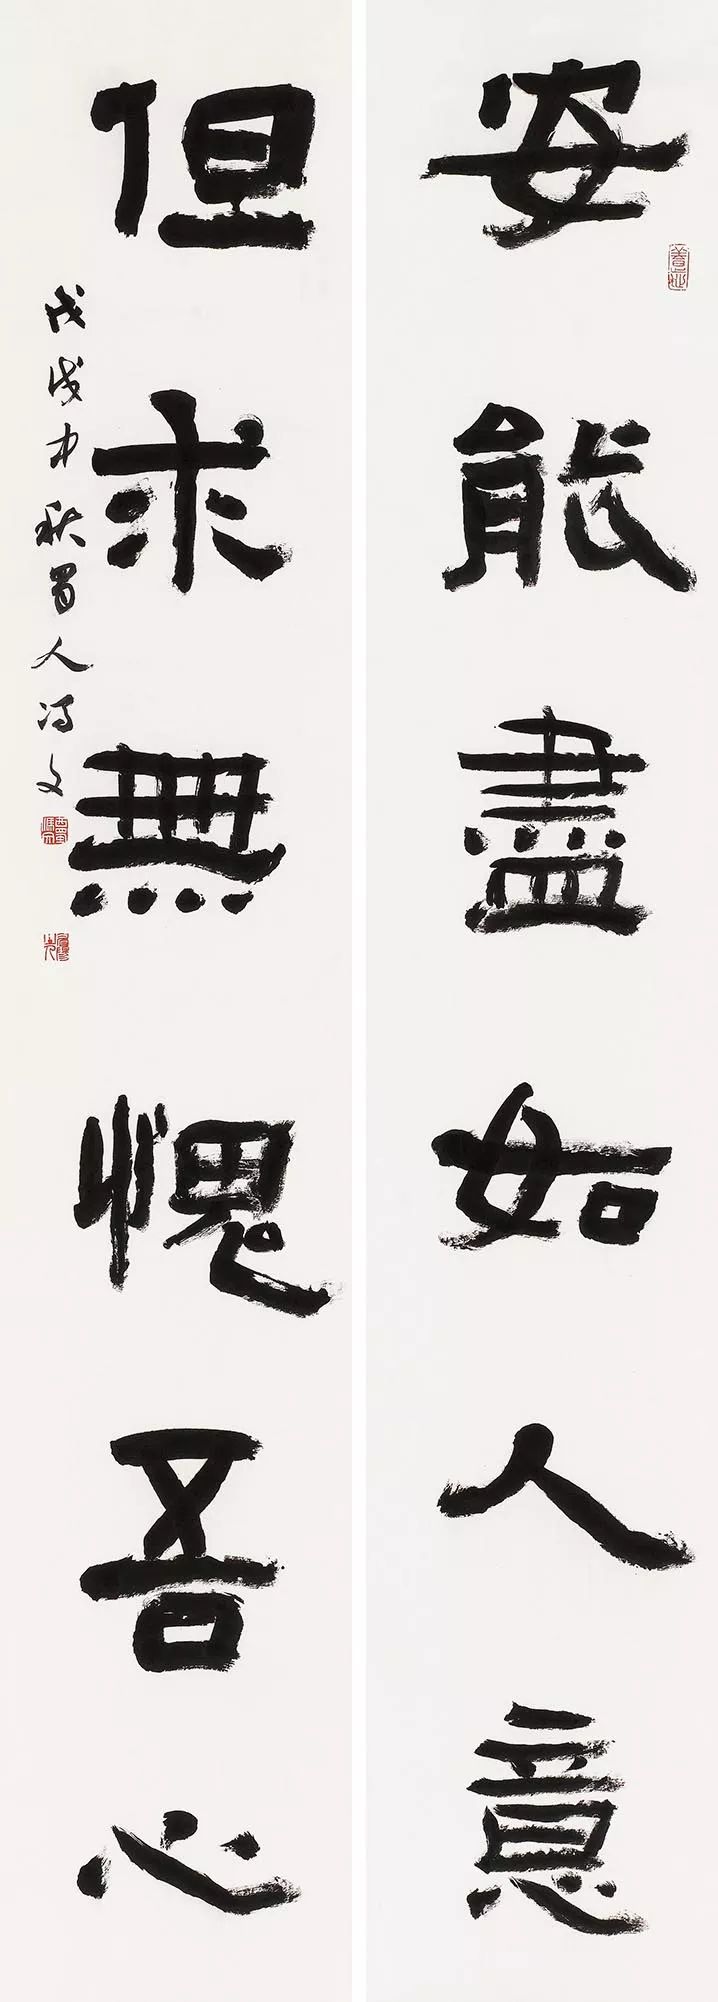 安能盡如人意
但求無愧吾心
戊戌中秋蜀人冯文